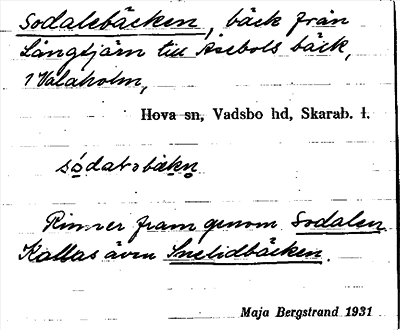 Sodalsbäcken, bäck från
Långtjärn till Åsebols bäck,
1 Valaholm,
Hova sn, Vadsbo hd, Skarab. l.
Rinner fram genom Sodalen
Kallas även Snelidbäcken.
Maja Bergstrand 1931